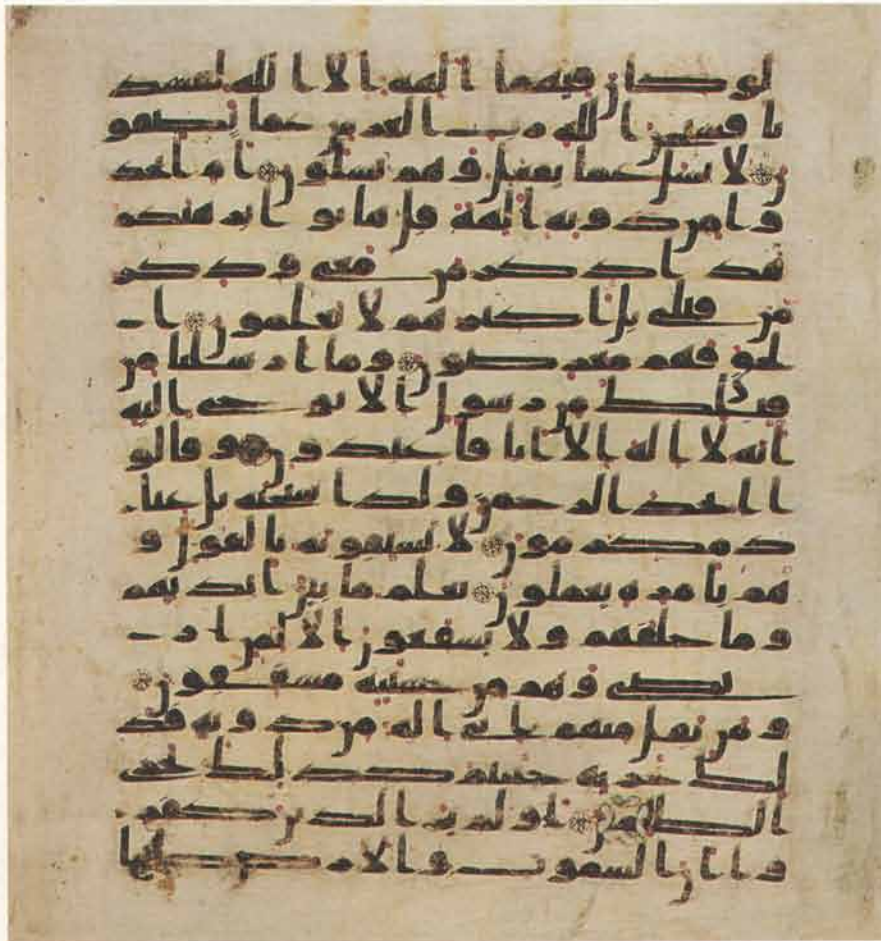 لو كان فيهما الهة الا الله لفسد
تا فسبحن الله رب العرش عما يصفو
ن لا يسل عما يفعل وهم يسلون ام اتخذ
وا من دونه الهة قل هاتوا برهنكم
هذا ذكر من معي وذكر
من قبلي بل اكثرهم لا يعلمون ا
لحق فهم معرضون وما ارسلنا من
قبلك من رسول الا نوحي اليه
انه لا اله الا انا فاعبدون وقالو
ا اتخذ الرحمن ولدا سبحنه بل عبا
د مكرمون لا يسبقونه بالقول و
هم بامره يعملون يعلم ما بين ايديهم
وما خلفهم ولا يشفعون الا لمن ار
تضى وهم من خشيته مشفقون
ومن يقل منهم اني اله من دونه فذ
لك نجزيه جهنم كذلك نجزي
الظلمين اولم ير الذين كفر
وا ان السموت والارض كانتا